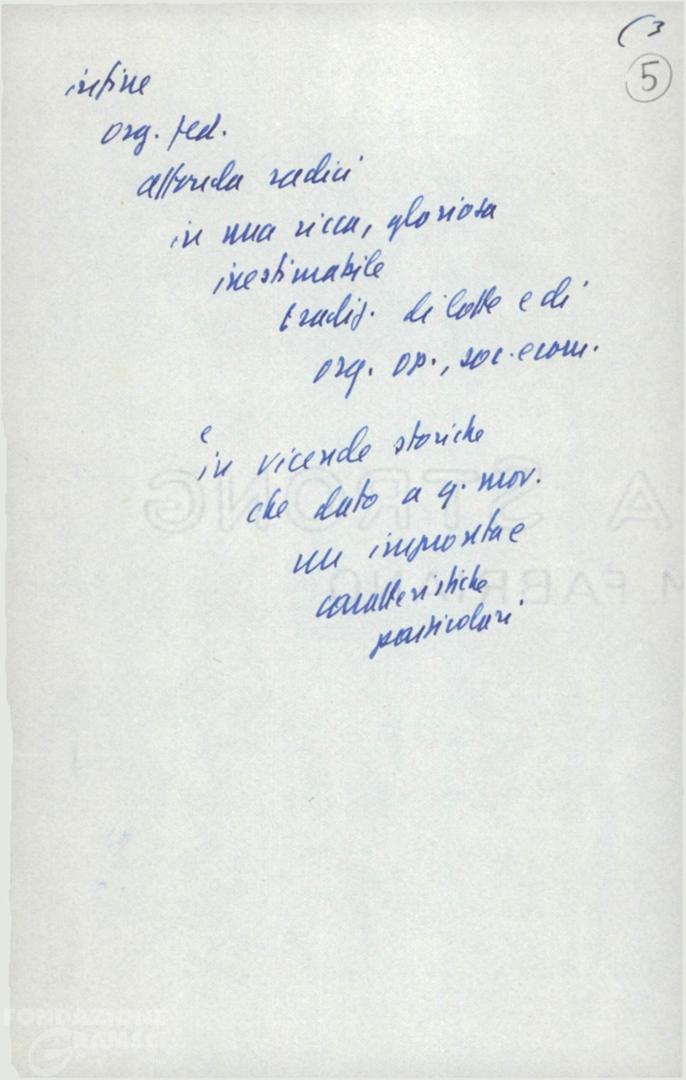 (3
5
infine
org. fed.
affonda radici
in una ricca, gloriosa
inestimabile
tradiz. di lotte e di
org. op., soc. econ.
e
in vicende storiche
che dato a q. mov.
un impronta e
caratteristiche
particolari
A STRONG
M FABRIANO
FONDAZIONE
GRAMSCI